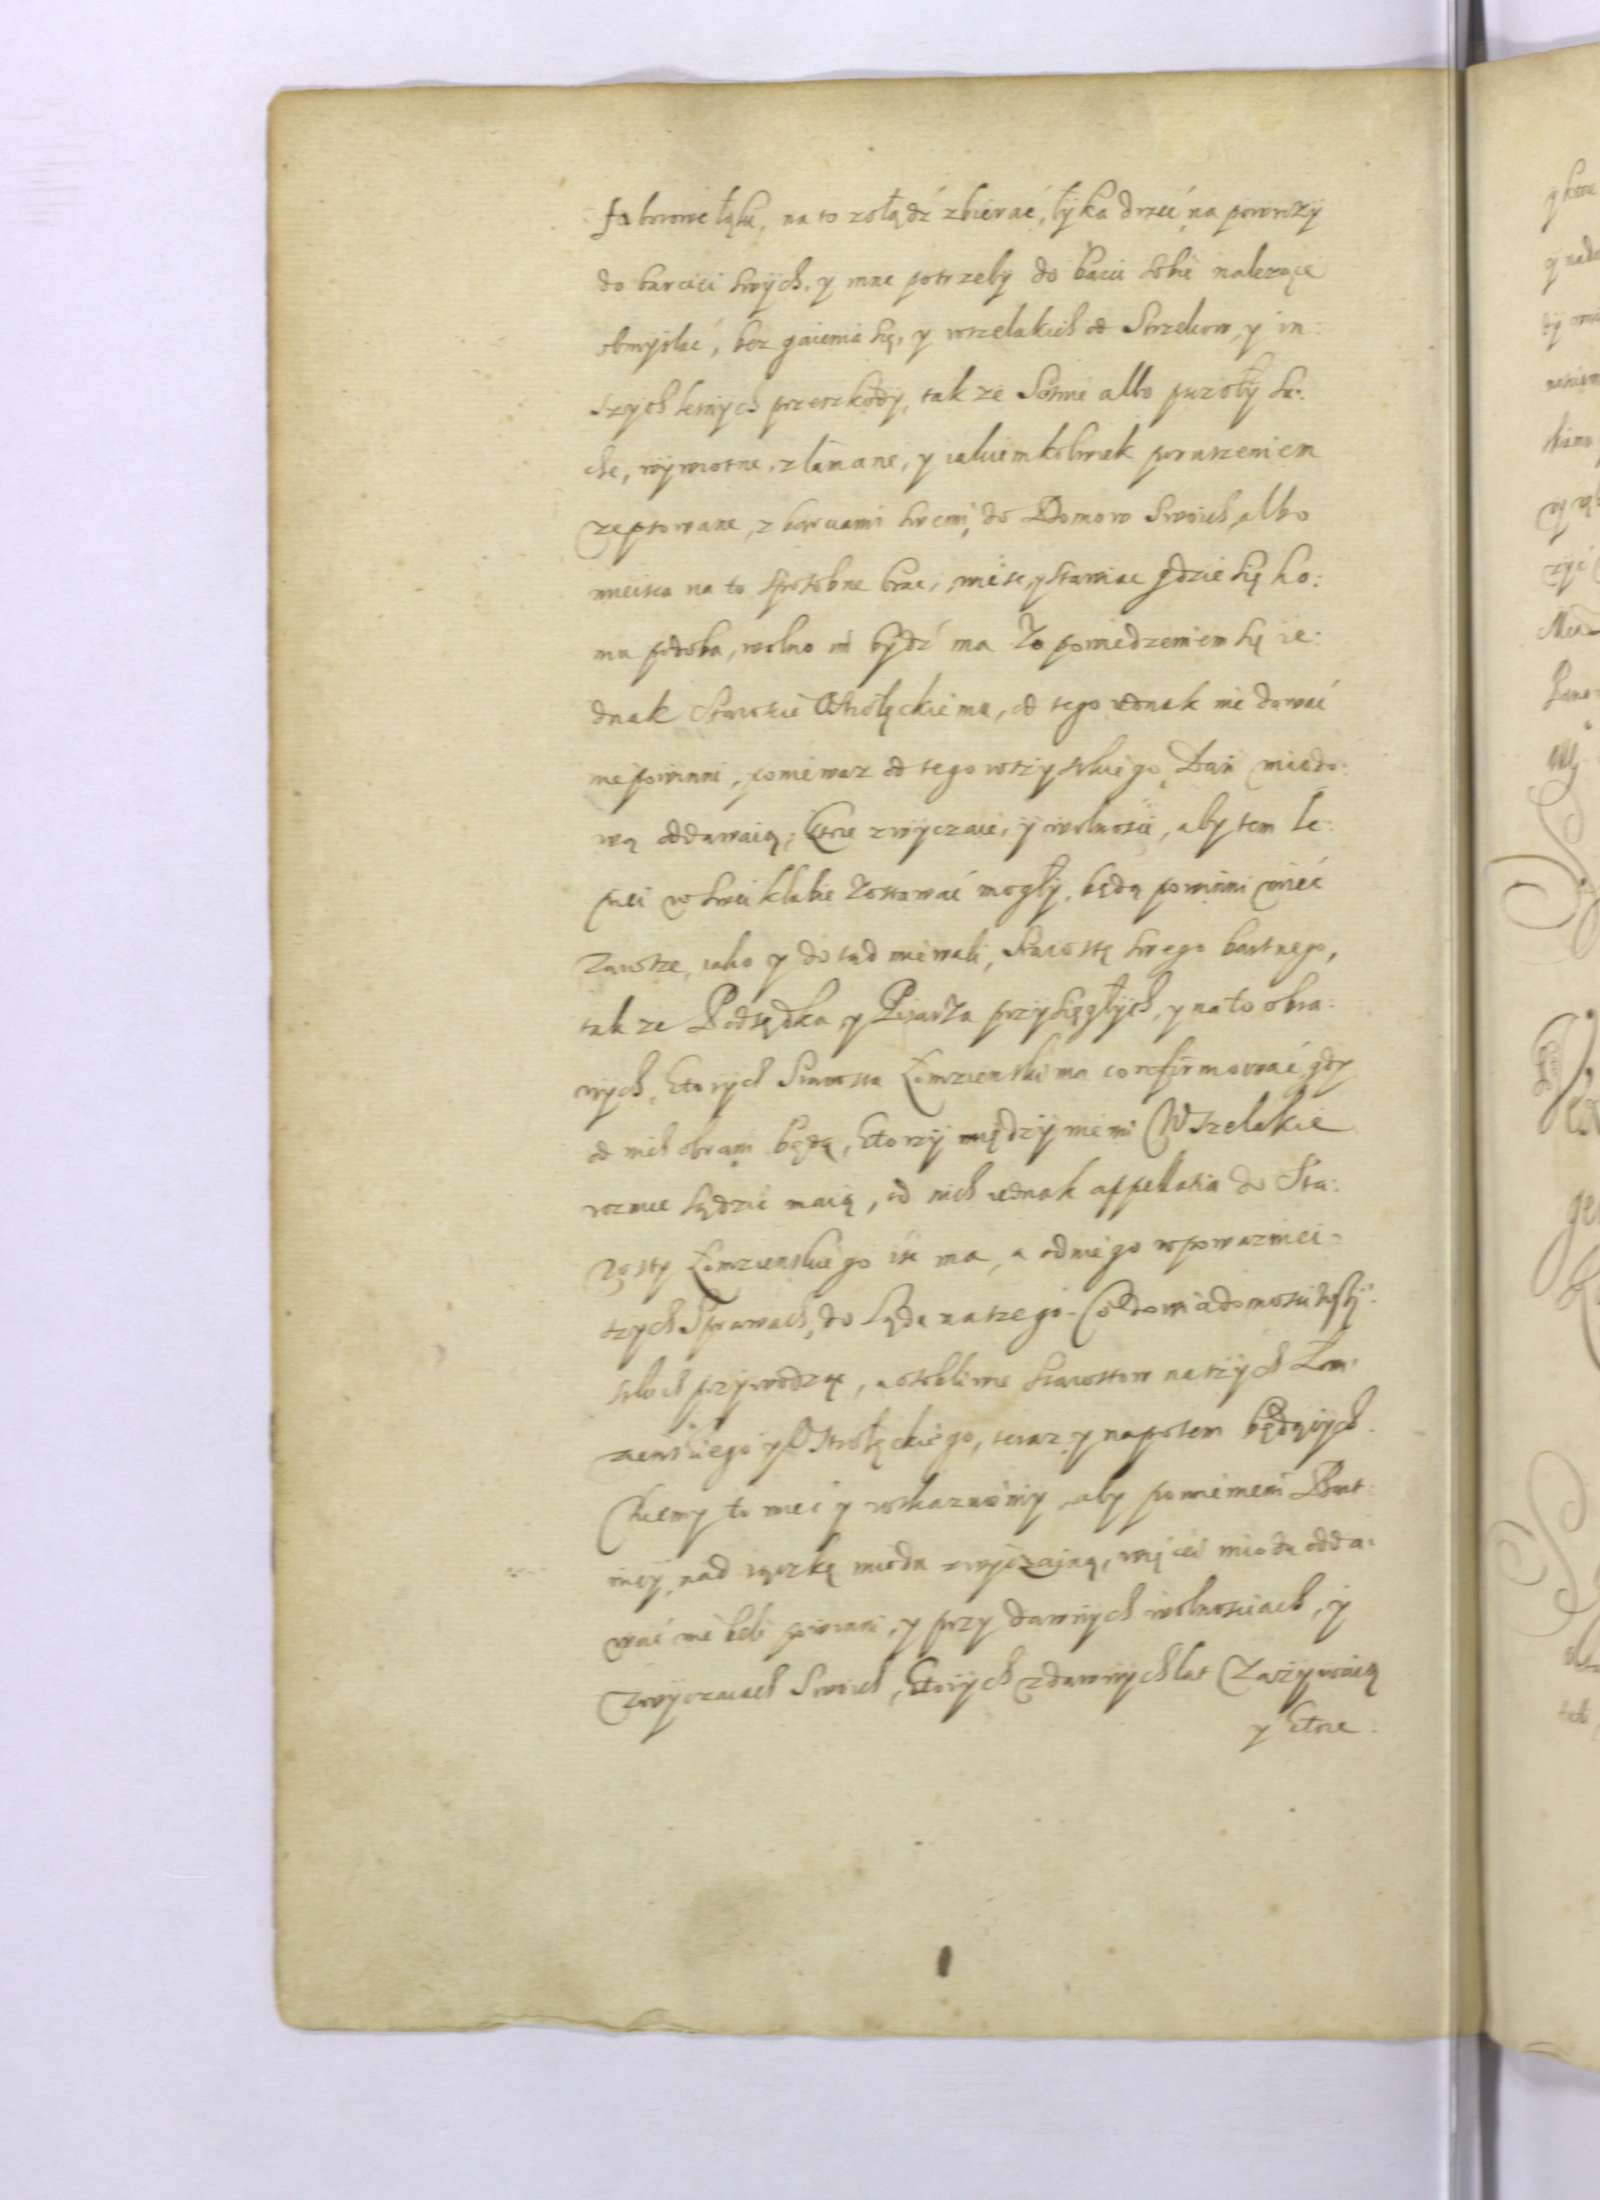 fa borowe łąki, na to żołądź zbierać, łyka drzeć na powrozÿ
do barciei swÿch, y inne potrzeby do barci sobie należące
obmÿślać, bez gaienia się, y wszelakich od Strzelcow, y in:
szych lesnÿch przeszkodÿ, tak ze Sosnie albo pszczołÿ su:
che, wÿwrotne, złamane, y iakiemkolwiek poruszeniem
zepsowane, z barciami swemi, do Domow Swoich, albo
mieisca na to sposobne brac, niesc y stawiac gdzie się ko:
mu podoba, wolno im bÿdź ma Za powiedzeniem się ie:
dnak Staroscie Ostrołęckiemu, od tego iednak nie dawać
nie powinni, poniewaz od tego wszÿstkiego Dań miodo:
wą oddawaią; Ktore zwÿczaie, ÿ wolności, aby tem le:
piei w swei klubie Zostawać mogłÿ, będą powinni mieć
Zawsze, iako y do tąd miewali, Starostę swego bartnego,
tak ze Podsędka y Pisarza przysięgłÿch, y na to obra:
nÿch, ktorÿch Starosta Łomzienski ma confirmować, gdy
od nich obrani będą, ktorzÿ międzÿ niemi Wszelakie
roznice sądzić maią, od nich iednak appellatia do Sta:
rosty Łomzienskiego iść ma, a od niego w powazniei:
szych Sprawach, do Sądu naszego. Co do wiadomosci wszÿ:
stkich przÿwodząc, a osobliwie Starostow naszÿch Łom:
zienskiego y Ostrołęckiego, teraz y napotem będącÿch
Chcemy to miec y wskazuiemy, aby pomienieni Bart:
nicÿ nad rączkę miodu zwÿczajną, więcei miodu odda:
wać nie beli powinni, y przy dawnÿch wolnosciach, ÿ
Zwÿczaiach Swoich, ktorÿch z dawnÿch lat Zażÿwaią
y ktore